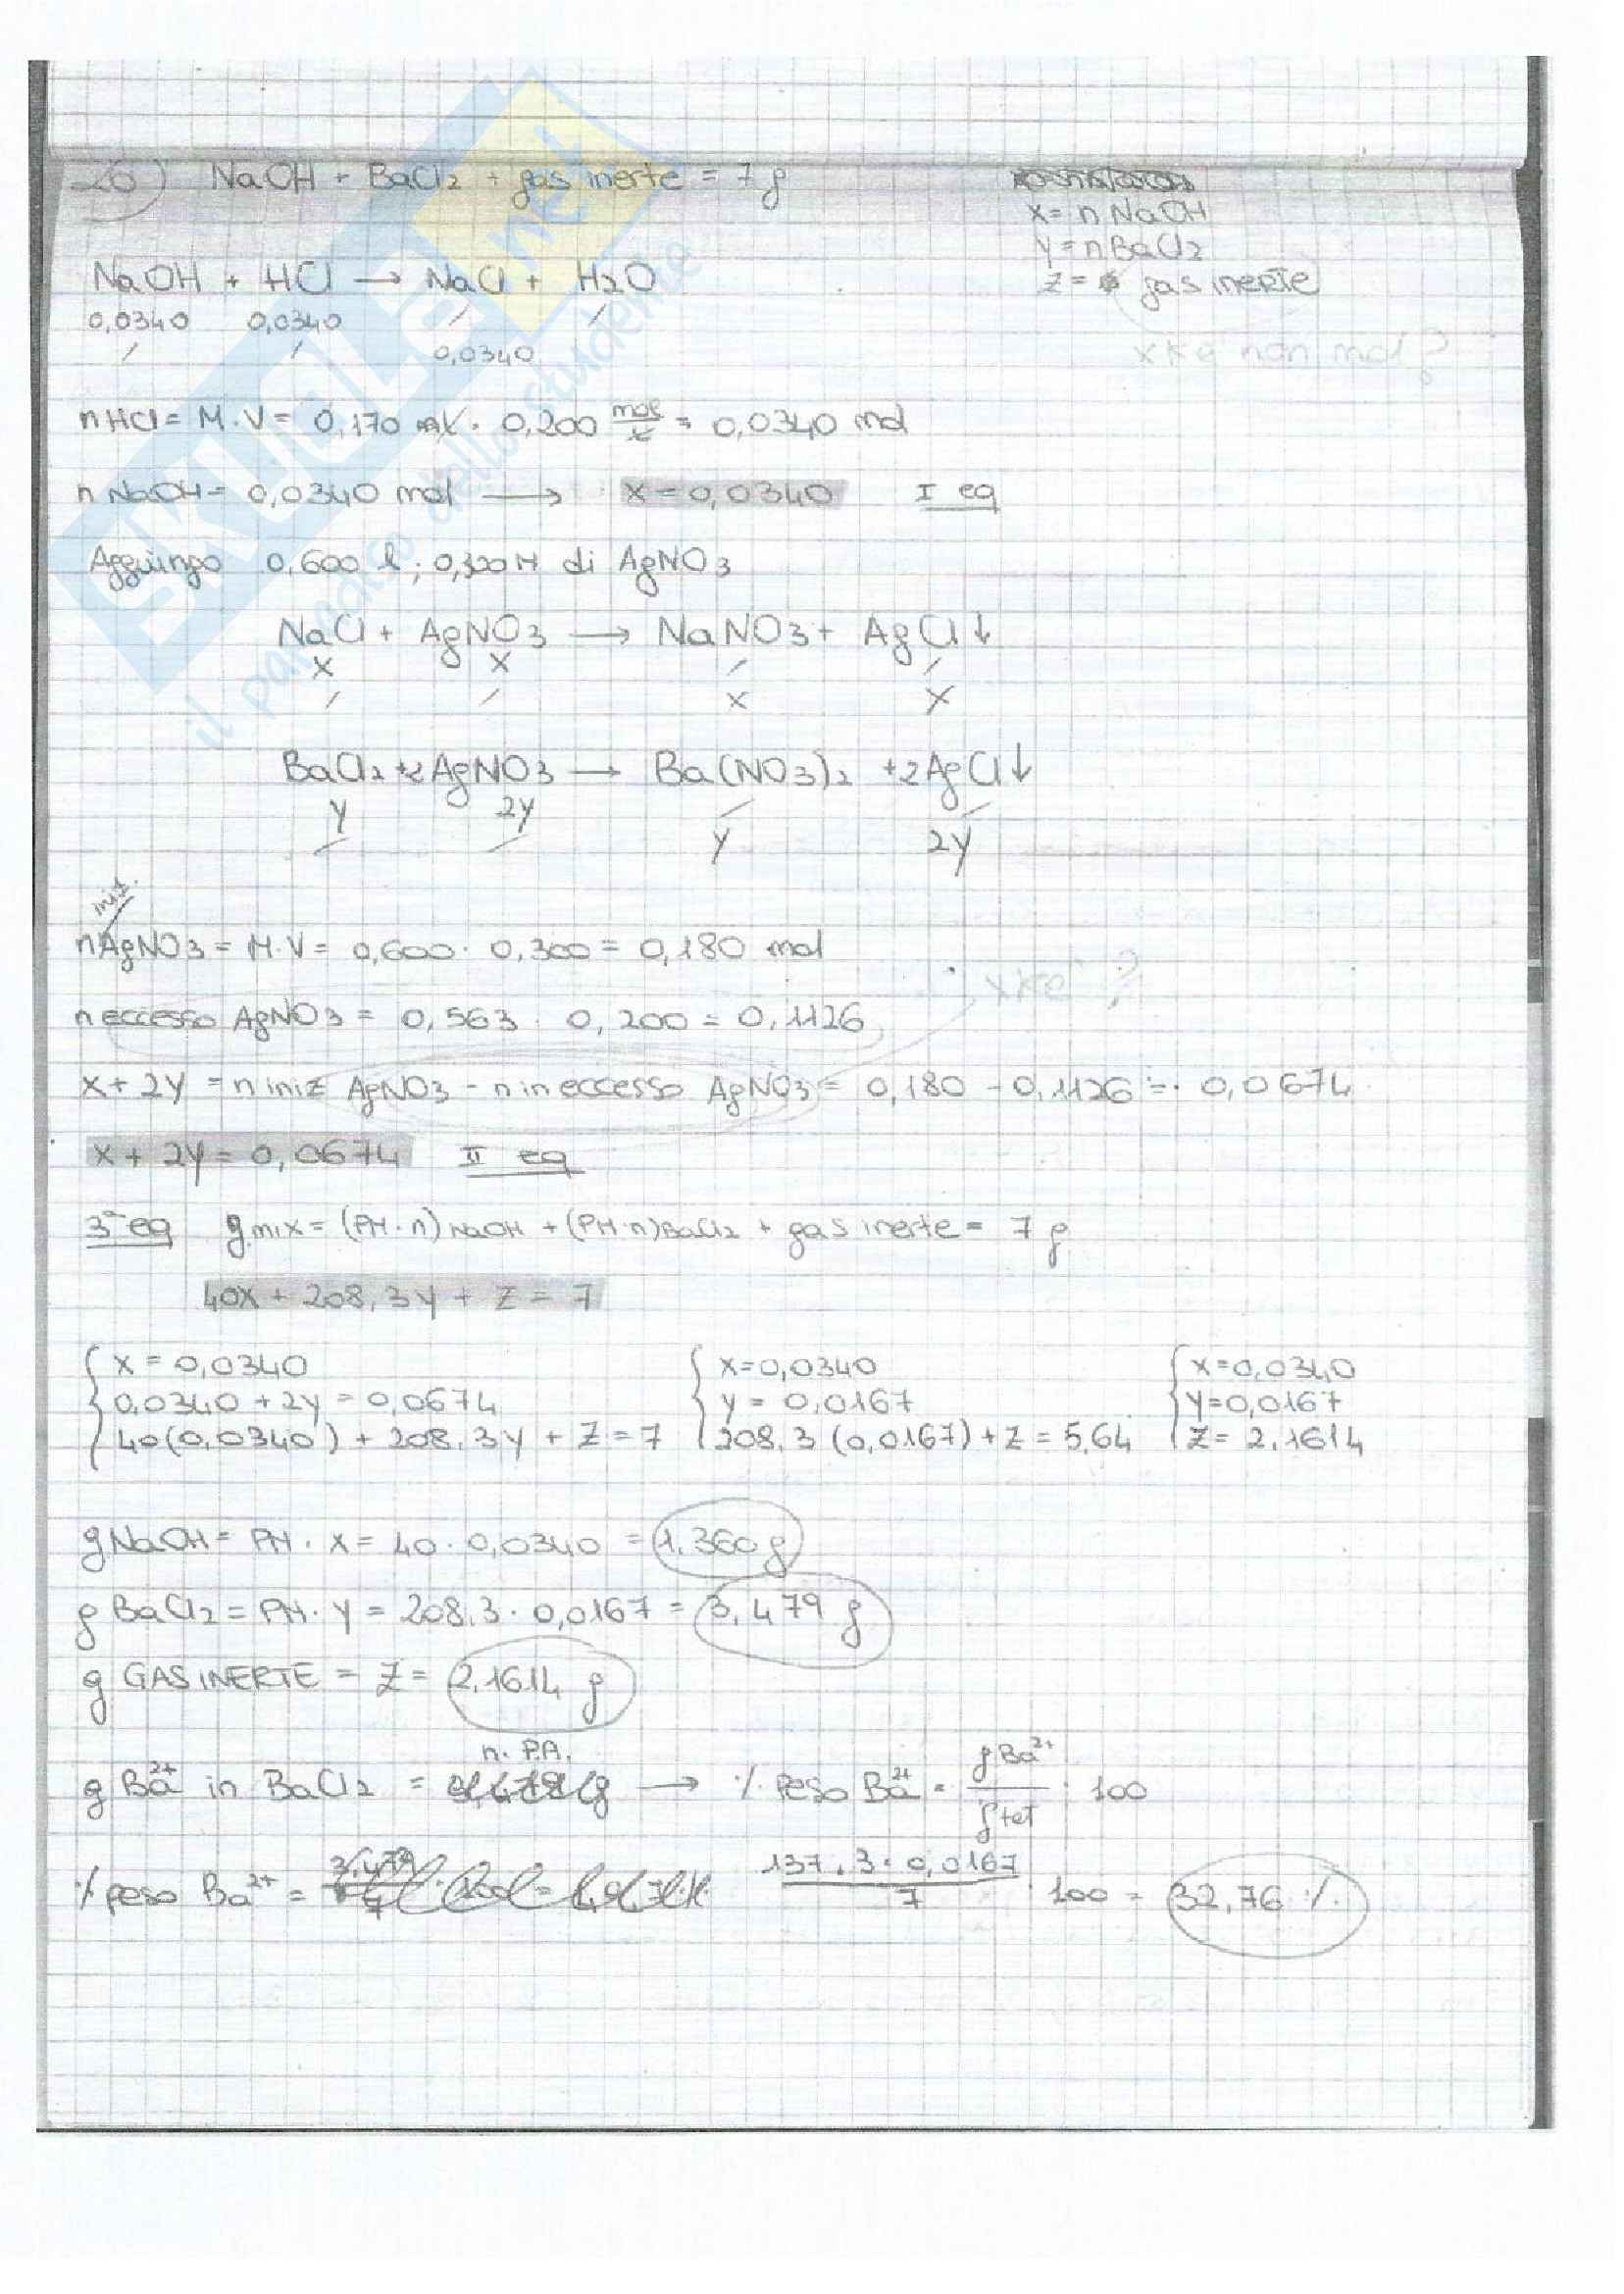 26) NaOH + BaCl2 + gas inerte = 7 g
x = n NaOH
y = n BaCl2
z = gas inerte
xke non mol?
NaOH + HCl → NaCl + H2O
0,0340 0,0340 / /
/ / 0,0340
nHCl = M·V = 0,170 · 0,200 mol/l = 0,0340 mol
n NaOH = 0,0340 mol → x = 0,0340 I eq
Aggiungo 0,600 l ; 0,300 M di AgNO3
NaCl + AgNO3 → NaNO3 + AgCl↓
x x / /
/ / x x
BaCl2 + 2AgNO3 → Ba(NO3)2 + 2AgCl↓
y 2y / /
/ / y 2y
iniz.
nAgNO3 = M·V = 0,600 · 0,300 = 0,180 mol
xke?
n eccesso AgNO3 = 0,563 · 0,200 = 0,1126
x + 2y = n iniz AgNO3 - n in eccesso AgNO3 = 0,180 - 0,1126 = 0,0674
x + 2y = 0,0674 II eq
3ª eq gmix = (PM·n)NaOH + (PM·n)BaCl2 + gas inerte = 7 g
40x + 208,3y + z = 7
{ x = 0,0340 { x = 0,0340 { x = 0,0340
0,0340 + 2y = 0,0674 y = 0,0167 y = 0,0167
40(0,0340) + 208,3y + z = 7 208,3(0,0167) + z = 5,64 z = 2,1614
gNaOH = PM · x = 40 · 0,0340 = 1,360 g
g BaCl2 = PM · y = 208,3 · 0,0167 = 3,479 g
g GAS INERTE = z = 2,1614 g
n. P.A.
g Ba2+ in BaCl2 = → % peso Ba2+ = g Ba2+ / g tot · 100
% peso Ba2+ = 137,3 · 0,0167 / 7 · 100 = 32,76 %
SKUOLA.net
il paradiso dello studente